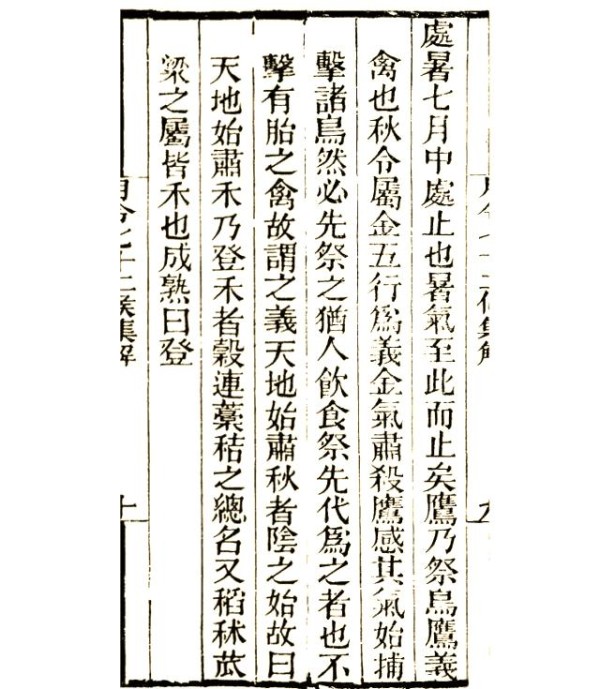 月令七十二候集解
處暑七月中處止也暑氣至此而止矣鷹乃祭鳥鷹義
禽也秋令屬金五行爲義金氣肅殺鷹感其氣始捕
擊諸鳥然必先祭之猶人飲食祭先代爲之者也不
擊有胎之禽故謂之義天地始肅秋者陰之始故曰
天地始肅禾乃登禾者穀連藁秸之總名又稻秫苽
粱之屬皆禾也成熟曰登
月令七十二候集解